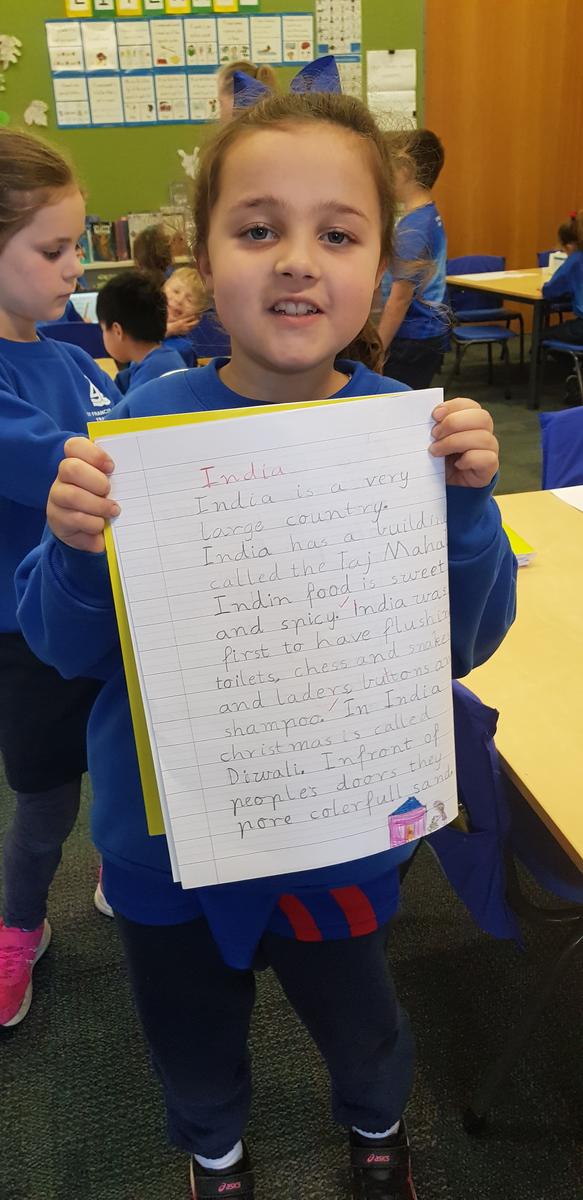 India
India is a very
large country.
India has a buildin
called the Taj Maha
Indin food is sweet
and spicy. India was
first to have flushin
toilets, chess and snake
and laders, buttons an
shampoo. In India
christmas is called
Diwali. Infront of
people's doors they
pore colerfull sand.
asics
asics